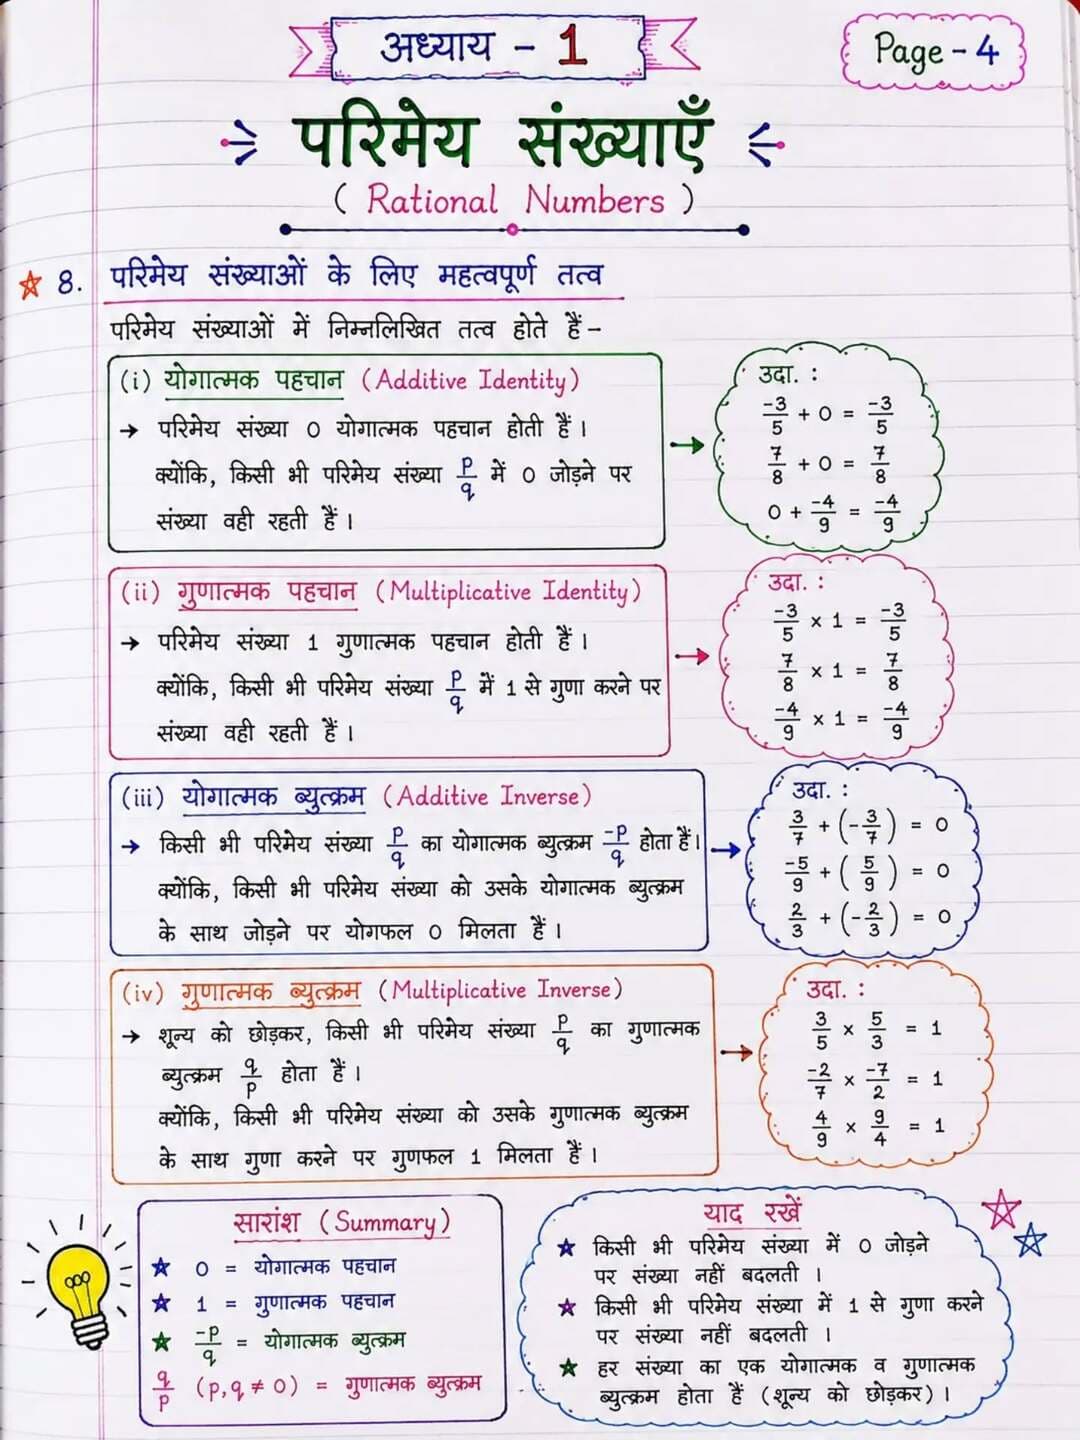 अध्याय - 1
Page - 4
परिमेय संख्याएँ
( Rational Numbers )
8. परिमेय संख्याओं के लिए महत्वपूर्ण तत्व
परिमेय संख्याओं में निम्नलिखित तत्व होते हैं -
(i) योगात्मक पहचान (Additive Identity)
→ परिमेय संख्या 0 योगात्मक पहचान होती हैं।
क्योंकि, किसी भी परिमेय संख्या p/q में 0 जोड़ने पर
संख्या वही रहती हैं।
उदा. :
-3/5 + 0 = -3/5
7/8 + 0 = 7/8
0 + -4/9 = -4/9
(ii) गुणात्मक पहचान (Multiplicative Identity)
→ परिमेय संख्या 1 गुणात्मक पहचान होती हैं।
क्योंकि, किसी भी परिमेय संख्या p/q में 1 से गुणा करने पर
संख्या वही रहती हैं।
उदा. :
-3/5 × 1 = -3/5
7/8 × 1 = 7/8
-4/9 × 1 = -4/9
(iii) योगात्मक ब्युत्क्रम (Additive Inverse)
→ किसी भी परिमेय संख्या p/q का योगात्मक ब्युत्क्रम -p/q होता हैं।
क्योंकि, किसी भी परिमेय संख्या को उसके योगात्मक ब्युत्क्रम
के साथ जोड़ने पर योगफल 0 मिलता हैं।
उदा. :
3/7 + (-3/7) = 0
-5/9 + (5/9) = 0
2/3 + (-2/3) = 0
(iv) गुणात्मक ब्युत्क्रम (Multiplicative Inverse)
→ शून्य को छोड़कर, किसी भी परिमेय संख्या p/q का गुणात्मक
ब्युत्क्रम q/p होता हैं।
क्योंकि, किसी भी परिमेय संख्या को उसके गुणात्मक ब्युत्क्रम
के साथ गुणा करने पर गुणफल 1 मिलता हैं।
उदा. :
3/5 × 5/3 = 1
-2/7 × -7/2 = 1
4/9 × 9/4 = 1
सारांश (Summary)
0 = योगात्मक पहचान
1 = गुणात्मक पहचान
-p/q = योगात्मक ब्युत्क्रम
q/p (p,q ≠ 0) = गुणात्मक ब्युत्क्रम
याद रखें
किसी भी परिमेय संख्या में 0 जोड़ने
पर संख्या नहीं बदलती।
किसी भी परिमेय संख्या में 1 से गुणा करने
पर संख्या नहीं बदलती।
हर संख्या का एक योगात्मक व गुणात्मक
ब्युत्क्रम होता हैं (शून्य को छोड़कर)।